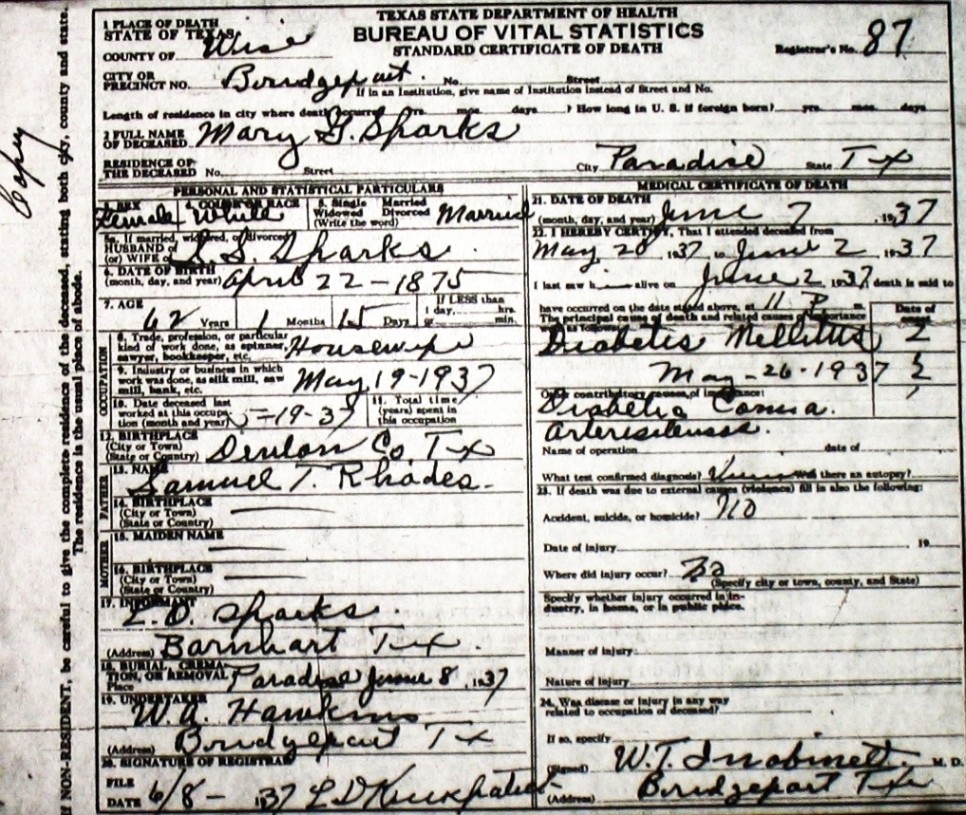 TEXAS STATE DEPARTMENT OF HEALTH
BUREAU OF VITAL STATISTICS
STANDARD CERTIFICATE OF DEATH
Registrar's No. 87
1 PLACE OF DEATH
STATE OF TEXAS
COUNTY OF Wise
CITY OR PRECINCT NO. Bridgeport. No. Street
If in an Institution, give name of Institution instead of Street and No.
Length of residence in city where death occurred yrs. mos. days. ? How long in U. S. if foreign born? yrs. mos. days
2 FULL NAME OF DECEASED Mary G. Sparks
RESIDENCE OF THE DECEASED No. Street City Paradise State Tx
PERSONAL AND STATISTICAL PARTICULARS
3. SEX Female 4. COLOR OR RACE White 5. Single Married Widowed Divorced (Write the word) Married
5a. If married, widowed, or divorced
HUSBAND of (or) WIFE of S. Sparks
6. DATE OF BIRTH (month, day, and year) April 22 - 1875
7. AGE 62 Years 1 Months 15 Days If LESS than 1 day, hrs. or min.
OCCUPATION
8. Trade, profession, or particular kind of work done, as spinner, sawyer, bookkeeper, etc. Housewife
9. Industry or business in which work was done, as silk mill, saw mill, bank, etc. May 19-1937
10. Date deceased last worked at this occupation (month and year) 5-19-37 11. Total time (years) spent in this occupation
12. BIRTHPLACE (City or Town) (State or Country) Denton Co. Tx
FATHER
13. NAME Samuel T. Rhodes.
14. BIRTHPLACE (City or Town) (State or Country)
MOTHER
15. MAIDEN NAME
16. BIRTHPLACE (City or Town) (State or Country)
17. INFORMANT L. O. Sparks
(Address) Barnhart Tx.
18. BURIAL, CREMATION, OR REMOVAL
Place Paradise June 8, 1937
19. UNDERTAKER W. A. Hawkins
(Address) Bridgeport Tx
20. SIGNATURE OF REGISTRAR
FILE DATE 6/8- 1937 L D Kirkpatrick
MEDICAL CERTIFICATE OF DEATH
21. DATE OF DEATH (month, day, and year) June 7, 1937
22. I HEREBY CERTIFY, That I attended deceased from
May 20 1937 to June 2, 1937
I last saw h alive on June 2 1937, death is said to
have occurred on the date stated above, at 11 P m.
The principal cause of death and related causes of importance were as follows: Date of
Diabetis Mellitus
May-26-1937
Other contributory causes of importance:
Diabetic Coma.
Name of operation date of
What test confirmed diagnosis? Was there an autopsy?
23. If death was due to external causes (violence) fill in also the following:
Accident, suicide, or homicide? No
Date of injury 19
Where did injury occur?
(Specify city or town, county, and State)
Specify whether injury occurred in industry, in home, or in public place.
Manner of injury
Nature of injury
24. Was disease or injury in any way related to occupation of deceased?
If so, specify
(Signed) W. T. Inabinett M. D.
(Address) Bridgeport Tx
Copy
If NON-RESIDENT, be careful to give the complete residence of the deceased, stating both city, county and state.
The residence is the usual place of abode.